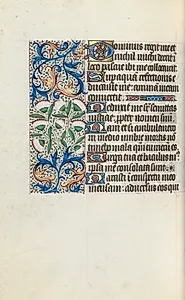 Dominus regit me et
nichil michi deerit
loco pascue ibi me collocavit
Sup aqua refectionis e
ducavit me animā meam
convertit
Deduxit me sup semitas
iusticie ppter nomen suū
Nam et si ambulavero
in medio umbre mortis nō
timebo mala qm̄ tu mecū es
Virga tua et baculus tu⁹
ipsa me consolata sunt
Parasti ī conspectu meo
mensam adversus eos qui